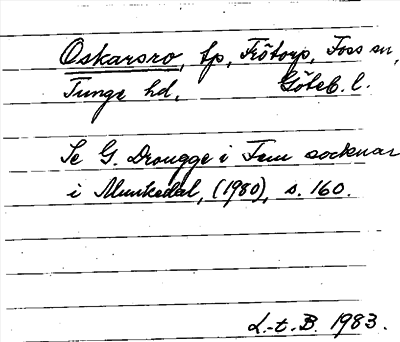 Oskarsro, tp, Frötorp, Foss sn,
Tunge hd. Göteb. l.
Se G. Drougge i Fem socknar
i Munkedal, (1980), s. 160.
L.-t. B. 1983.